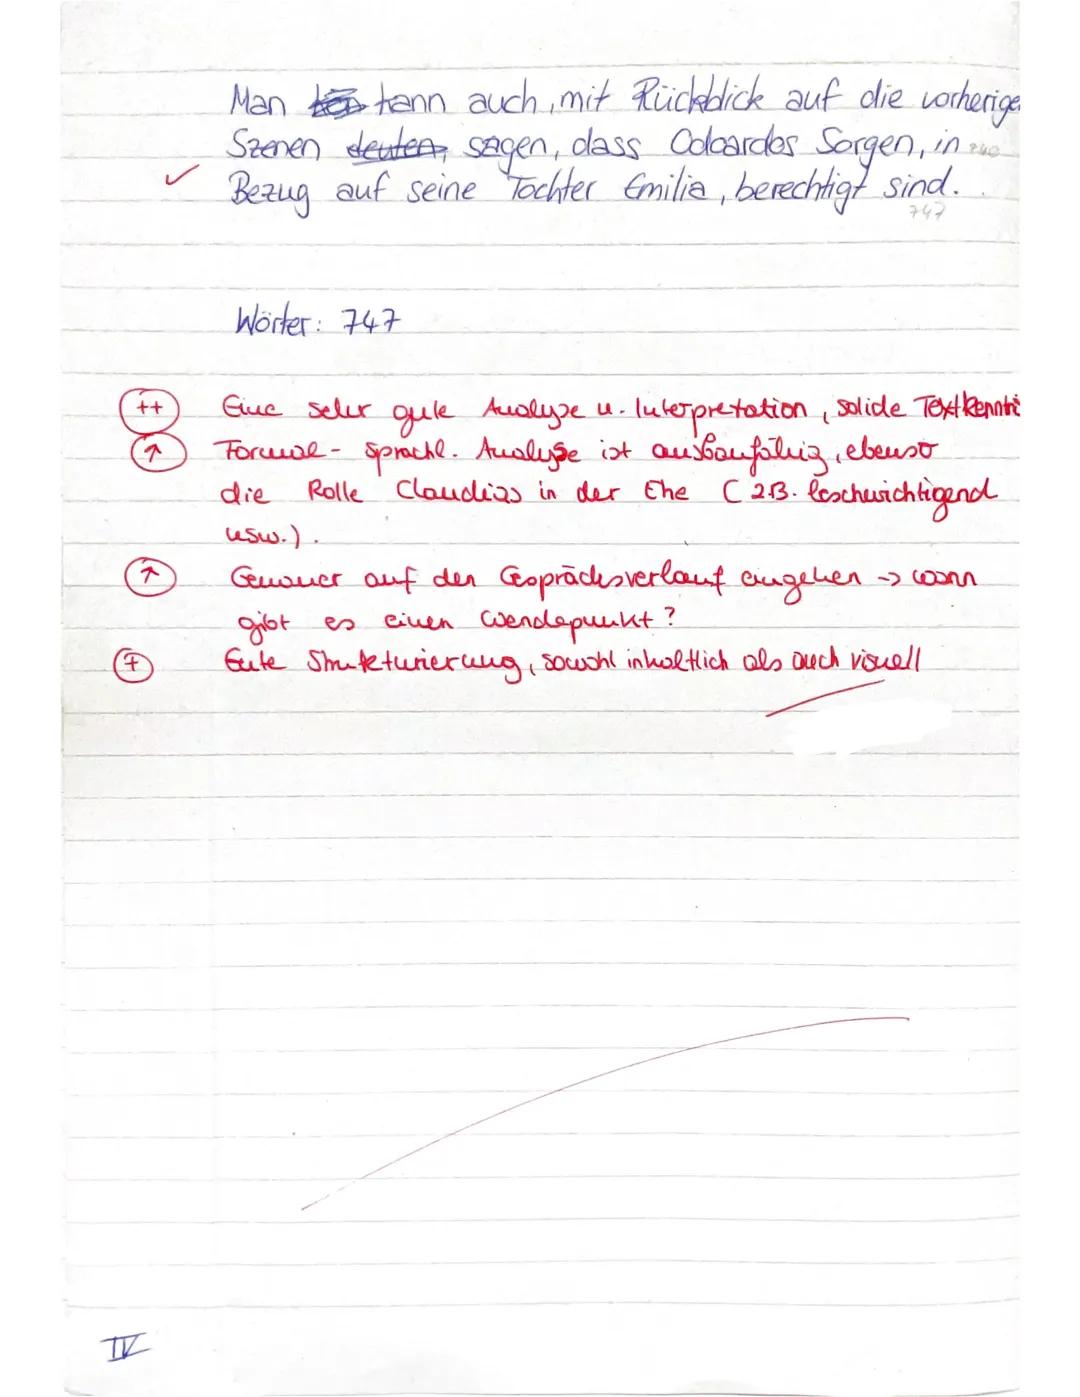 Man kann auch, mit Rückblick auf die vorherige
Szenen deuten, sagen, dass Odoardos Sorgen, in 740
Bezug auf seine Tochter Emilia, berechtigt sind.
747
Wörter: 747
++ Eine sehr gute Analyse u. Interpretation, solide Textkenntni
↑ Formal-sprachl. Analyse ist ausbaufähig, ebenso
die Rolle Claudias in der Ehe (z.B. beschwichtigend
usw.).
↑ Genauer auf den Gesprächsverlauf eingehen -> wann
gibt es einen Wendepunkt?
+ Gute Strukturierung, sowohl inhaltlich als auch visuell
IV